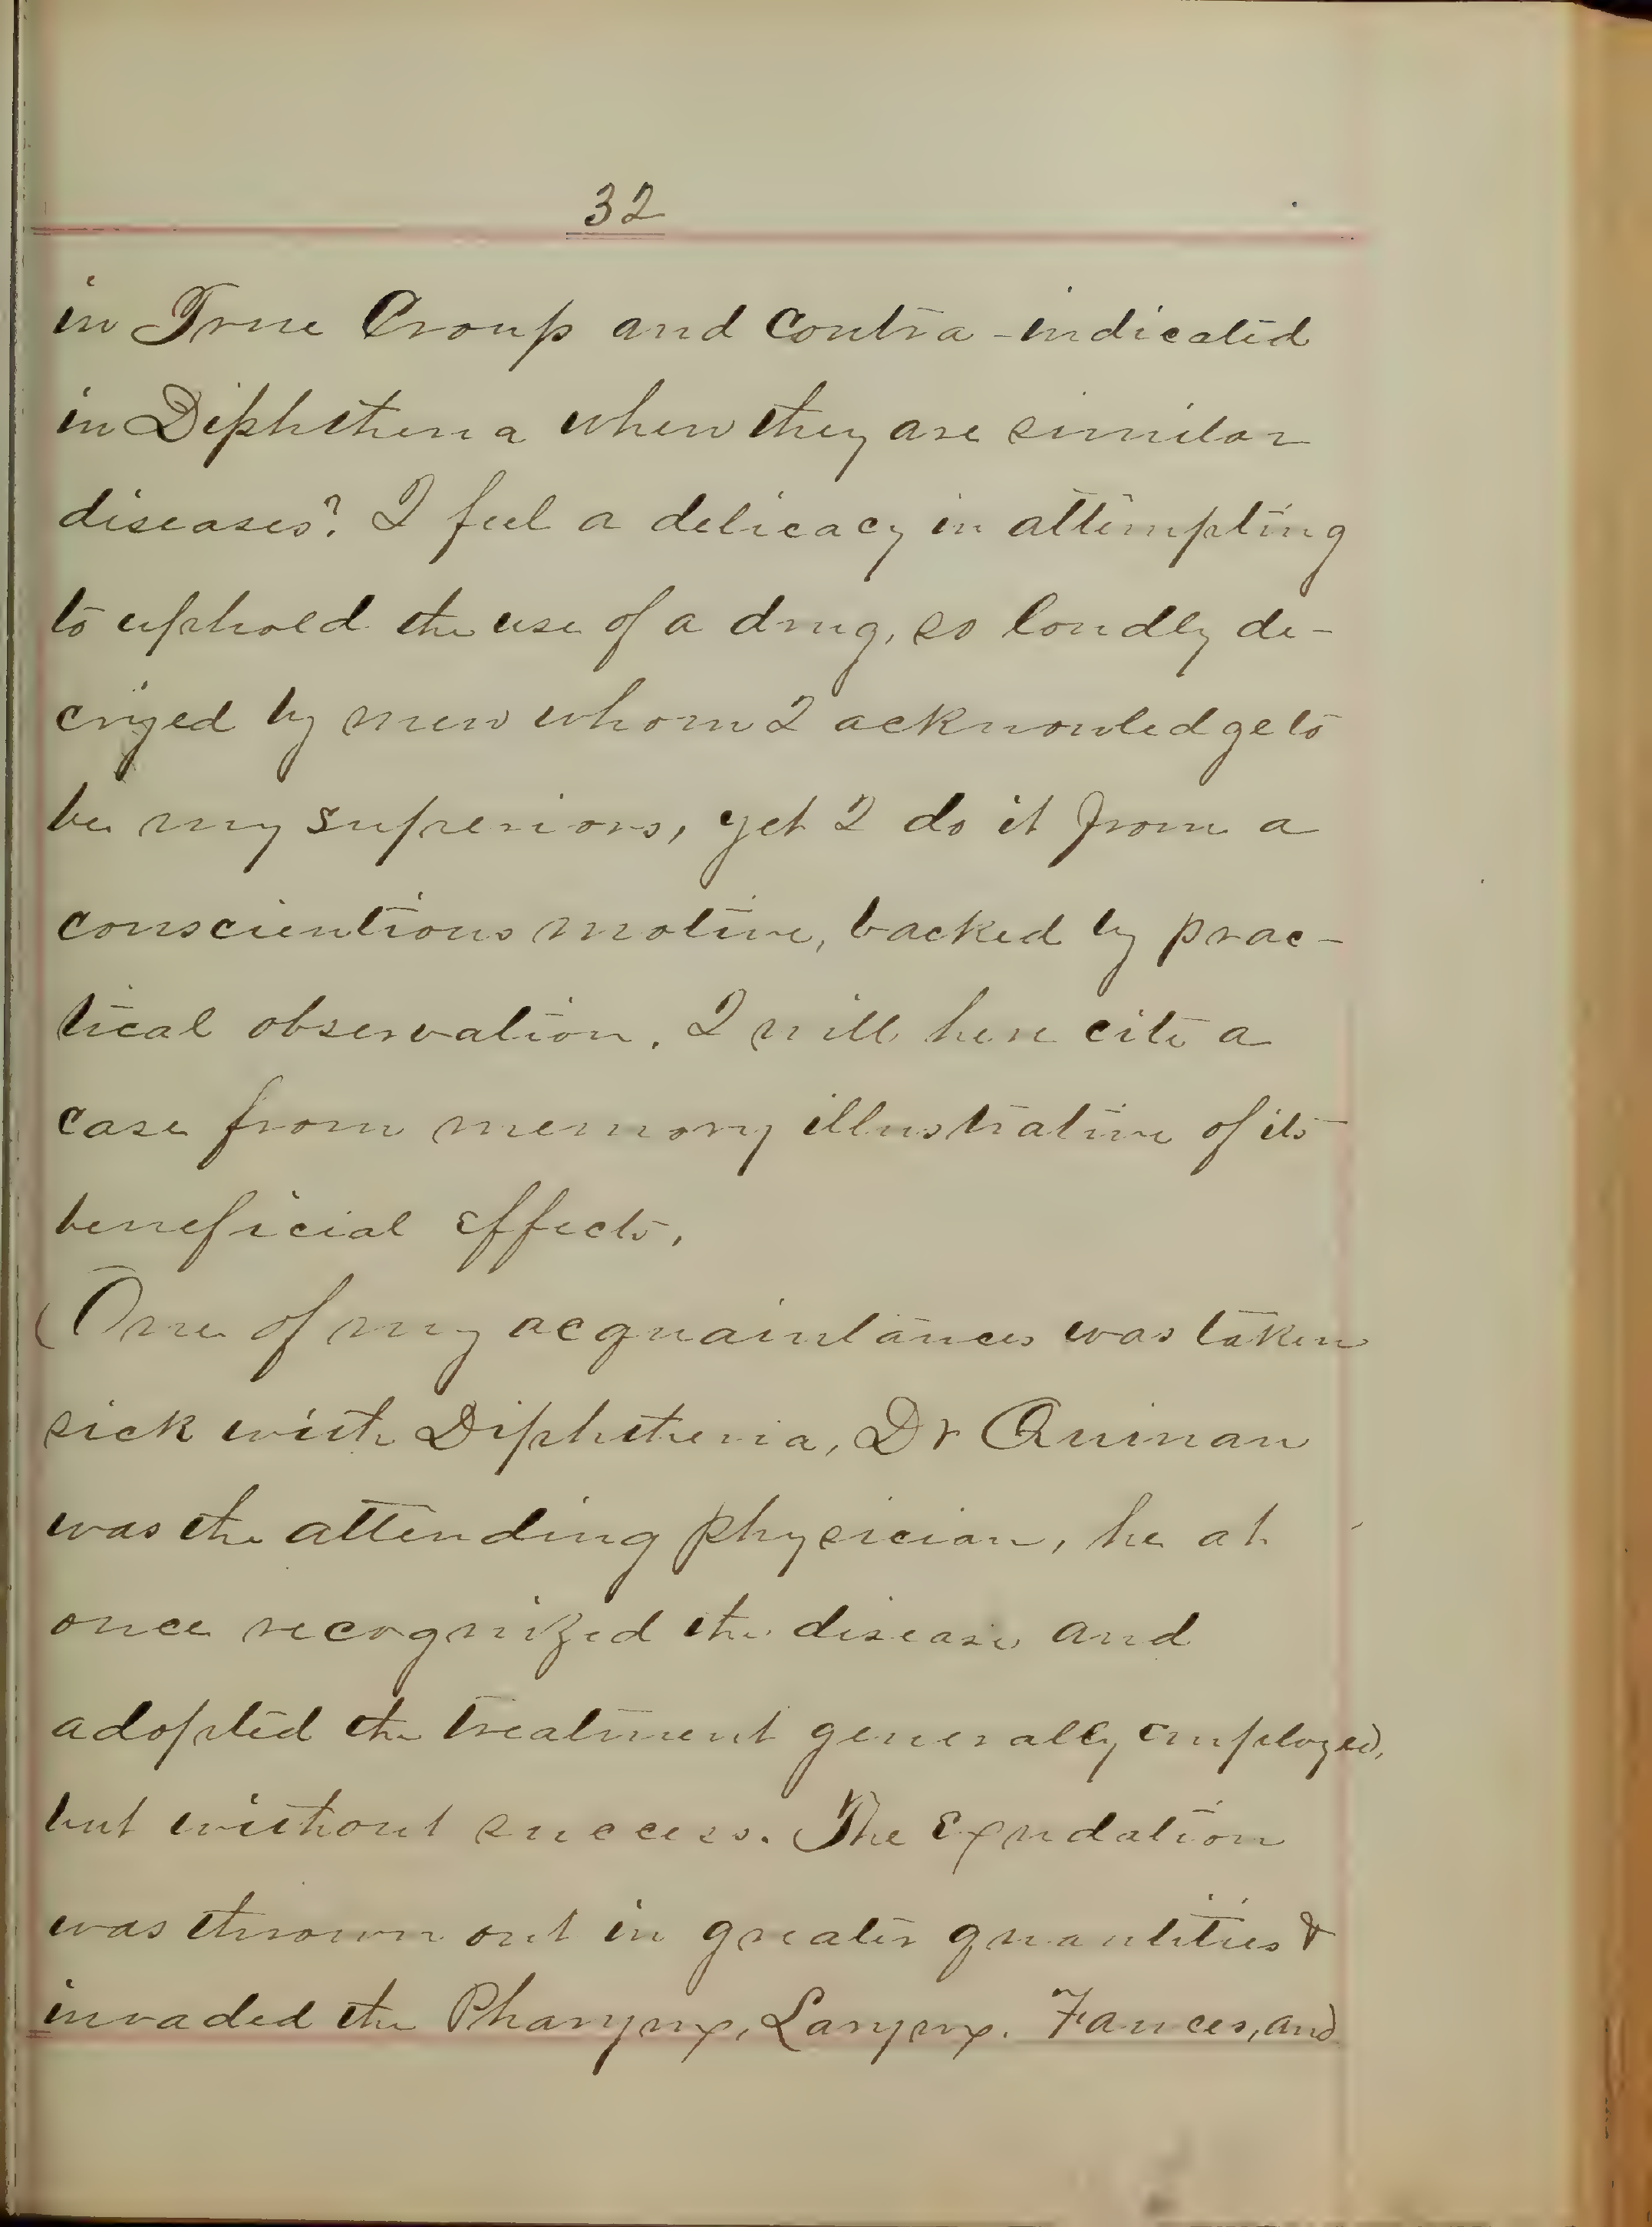 32
in True Croup and Contra-indicated
in Diphtheria when they are similar
diseases? I feel a delicacy in attempting
to uphold the use of a drug, so loudly de-
cryed by men whom I acknowledge to
be my superiors, yet I do it from a
conscientious motive, backed by prac-
tical observation. I will here cite a
case from memory illustrative of its
beneficial effects.
(One of my acquaintances was taken
sick with Diphtheria, Dr Quinan
was the attending physician, he at
once recognized the disease and
adopted the treatment generally employed,
but without success. The Exudation
was thrown out in greater quantities &
invaded the Pharynx, Larynx. Fauces, and